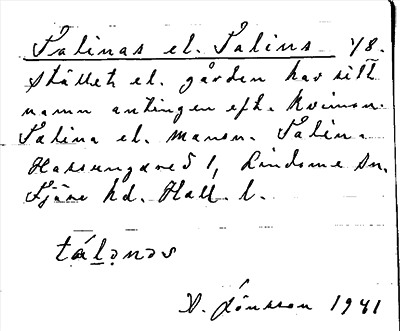 Talinas el. Talins 48.
Stället el. gården har sitt
namn antingen eft. kvinnon.
Talina el. mansn. Talin.
Hassungared 1, Lindome sn.
Fjäre hd. Hall. l.
tálənəs
V. Jönsson 1941